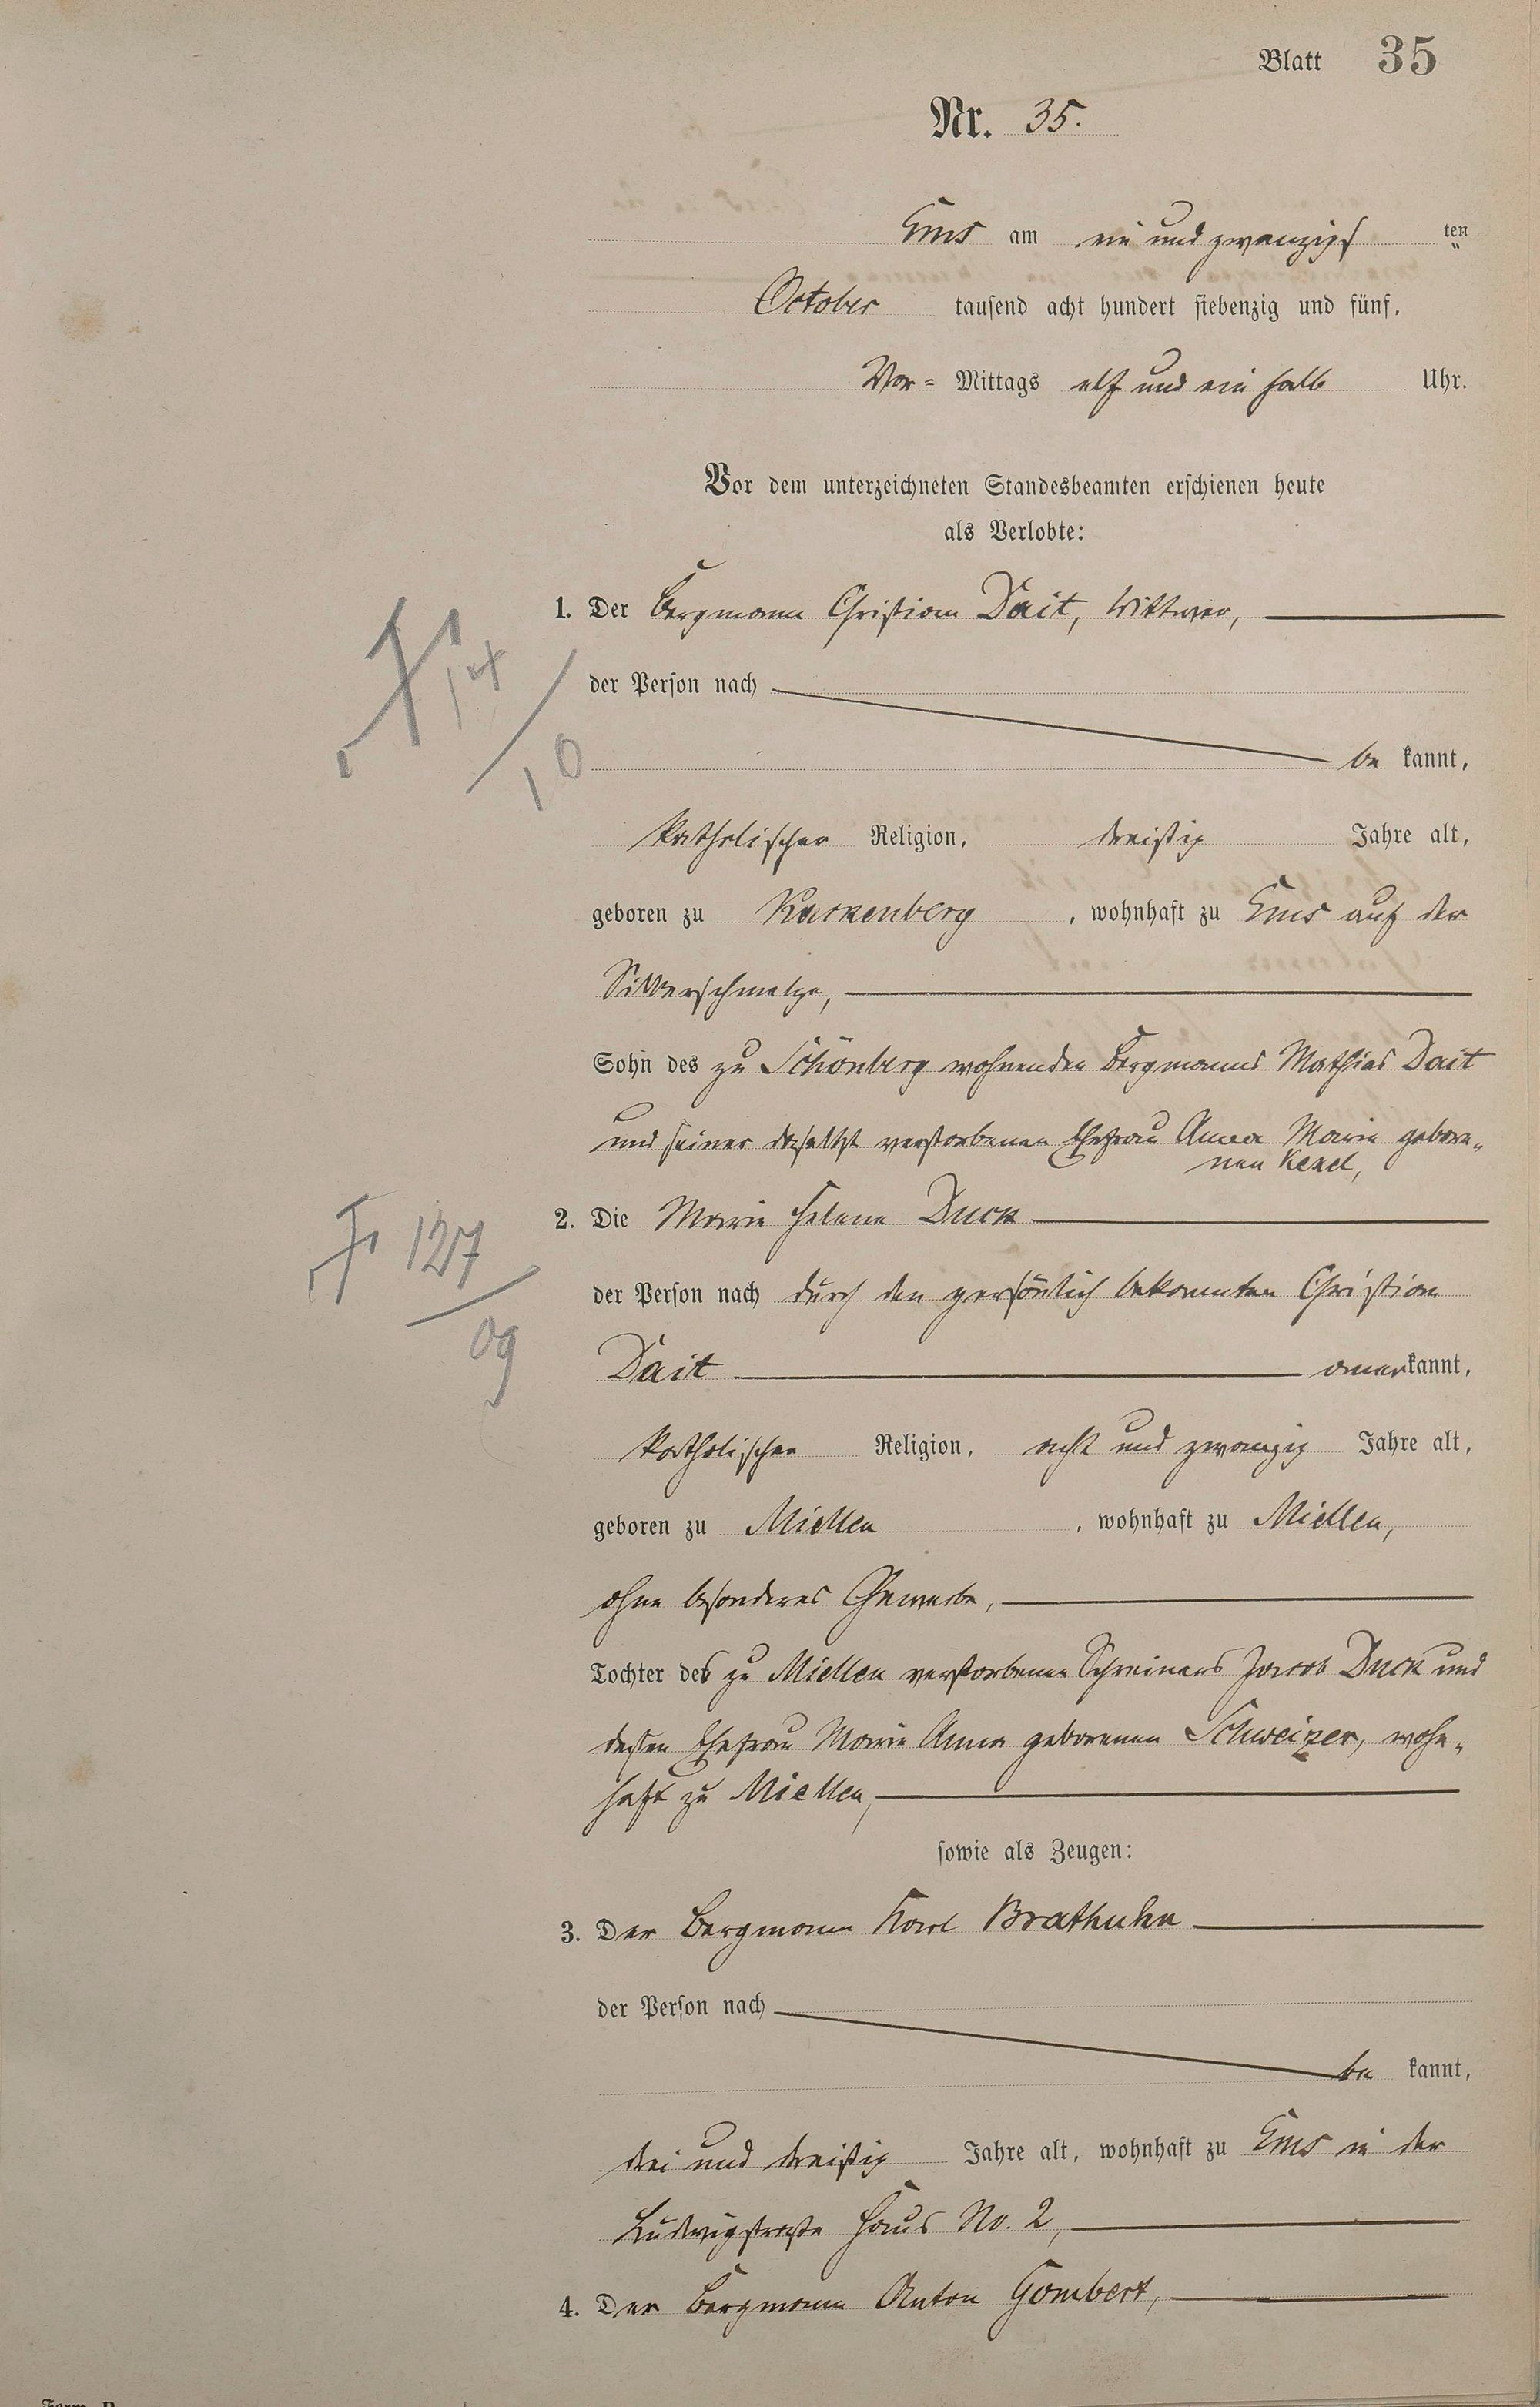 Blatt 35
Nr. 35.
Ems am ein und zwanzigsten
October tausend acht hundert siebenzig und fünf,
Vor= Mittags elf und ein halb Uhr.
Vor dem unterzeichneten Standesbeamten erschienen heute
als Verlobte:
1. Der Bergmann Christian Dait, Wittwer,
der Person nach
be kannt,
katholischer Religion, dreißig Jahre alt,
geboren zu , wohnhaft zu Ems auf der
Silberschmelze,
Sohn des zu Schönberg wohnenden Bergmanns Mathias Dait
und seiner daselbst verstorbenen Ehefrau Anna Maria gebore„
nen
2. Die Maria Helena Duck
der Person nach durch den persönlich bekannten Christian
Dait anerkannt,
katholischer Religion, acht und zwanzig Jahre alt,
geboren zu Miellen , wohnhaft zu Miellen,
ohne besonderes Gewerbe,
Tochter des zu Miellen verstorbenen Schreiners Jacob Duck und
dessen Ehefrau Maria Anna geborenen Schweizer, wohn„
haft zu Miellen,
sowie als Zeugen:
3. Der Bergmann Karl Brathuhn
der Person nach
be kannt,
drei und dreißig Jahre alt, wohnhaft zu Ems in der
Ludwigstraße Haus No. 2,
4. Der Bergmann Anton Gombert,
127
09
14
10